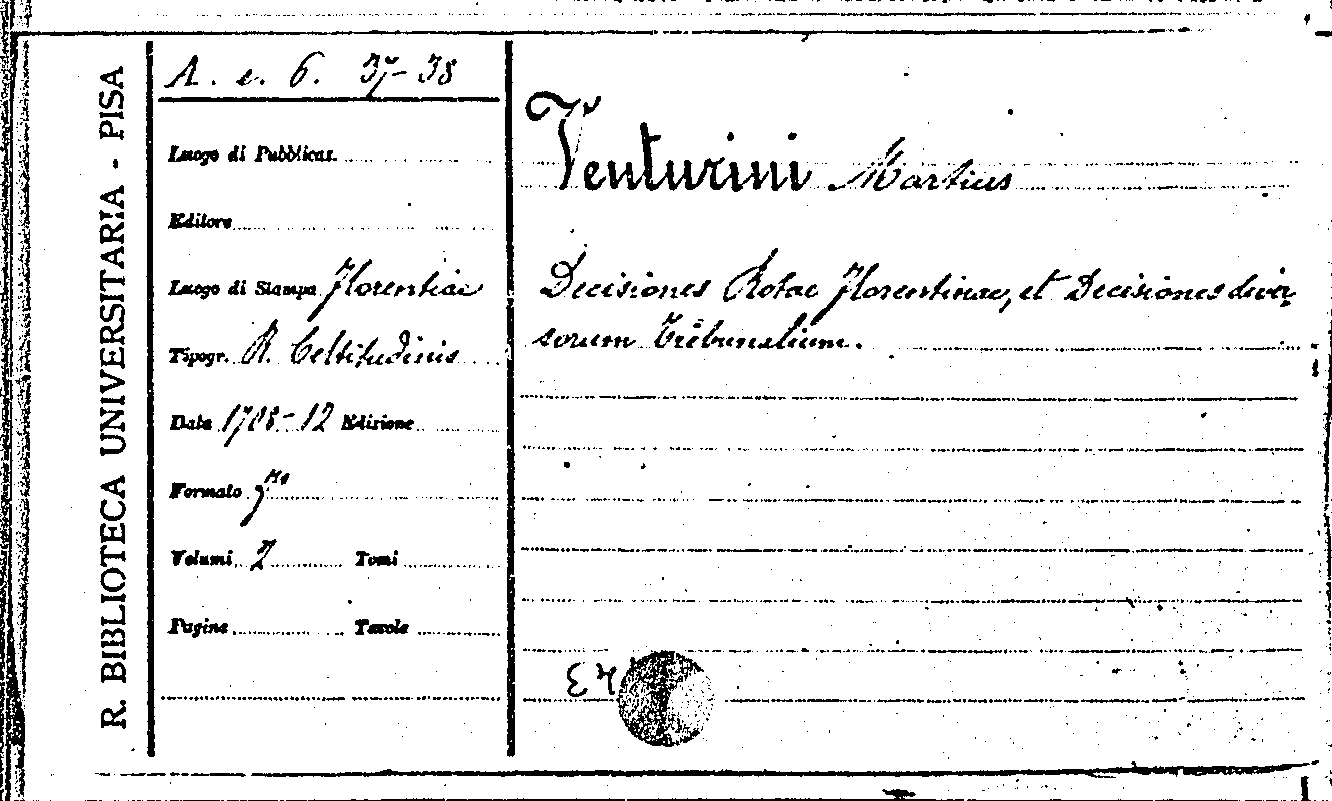 R. BIBLIOTECA UNIVERSITARIA - PISA
A. e. 6. 37-38
Luogo di Pubblicaz.
Editore
Luogo di Stampa Florentiae
Tipogr. R. Celsitudinis
Data 1708-12 Edizione
Formato
Volumi 2 Tomi
Pagine Tavole
Venturini Martius
Decisiones Rotae Florentinae, et Decisiones diver
sorum Tribunalium.